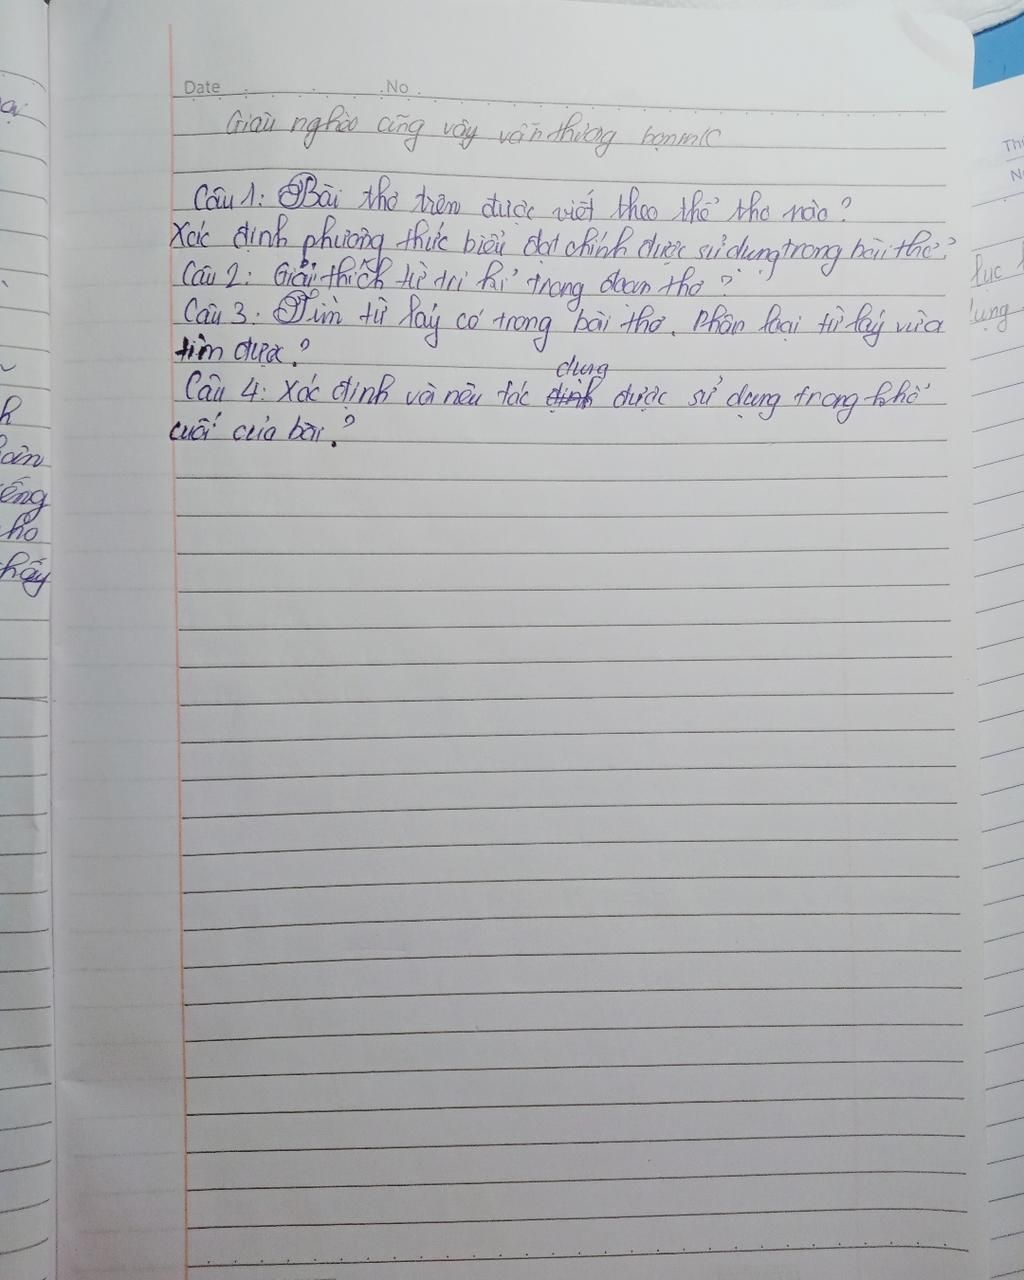 Date No
Giàu nghèo cũng vậy vẫn thương
Câu 1: Bài thơ trên được viết theo thể thơ nào?
Xác định phương thức biểu đạt chính được sử dụng trong bài thơ?
Câu 2: Giải thích từ tri kỉ trong đoạn thơ?
Câu 3. Tìm từ láy có trong bài thơ. Phân loại từ láy vừa
tìm được?
dụng
Câu 4: Xác định và nêu tác định được sử dụng trong khổ
cuối của bài.?
ại
h
oàn
iếng
ho
hấy
lục
ụng